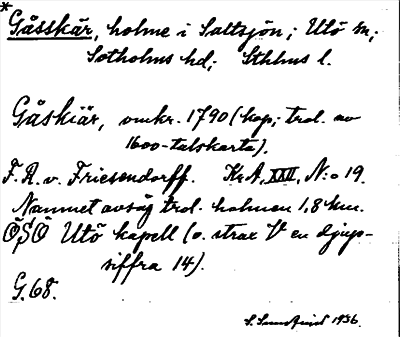 *
Gåsskär, holme i Saltsjön; Utö sn;
Sotholms hd; Sthlms l.
Gåskiär, omkr. 1790 (kop; trol. av
1600-talskarta).
F. R. v. Friesendorff. KrA, XXII, N:o 19.
Namnet avsåg trol. holmen 1,8 km.
ÖSÖ Utö kapell (o. strax V en djup-
siffra 14).
G. 68.
S. Sundqvist 1936.